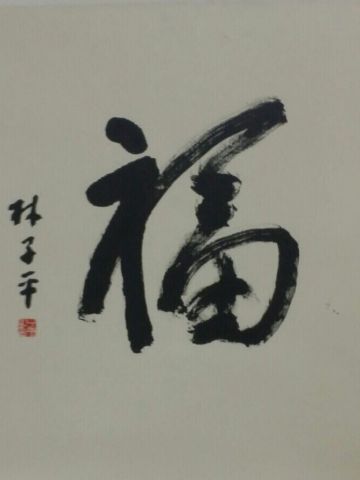 福
林子平